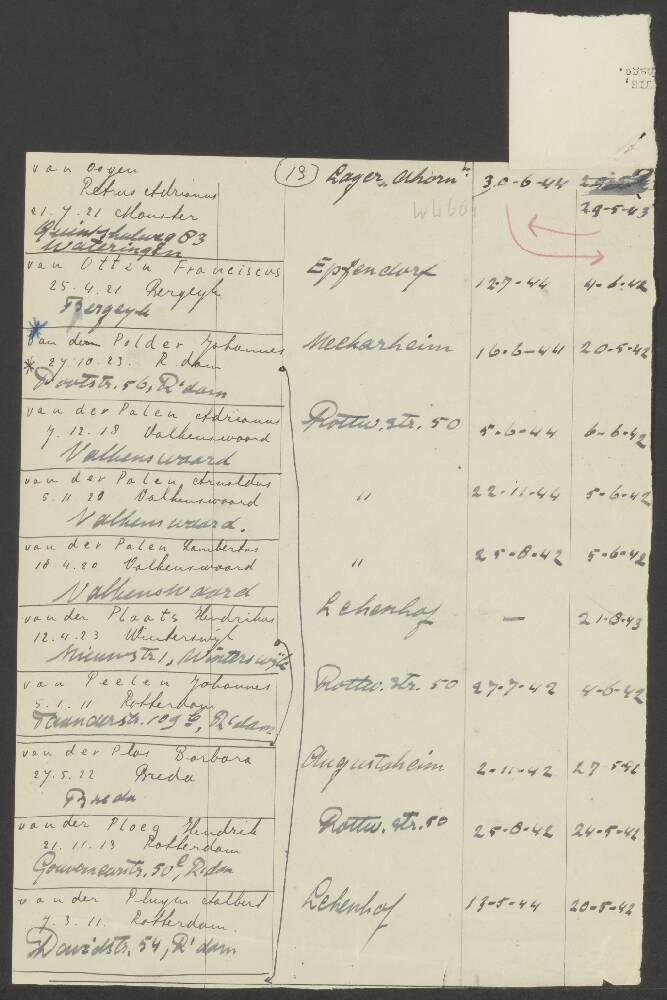 van Ooyen (13) Lager „Ahorn“ 30-6-44
Petrus Adrianus
21.7.21 Monster 29-5-43
83
Wateringen
van Otten Franciscus Epfendorf 12-7-44 4-6-42
25.4.21 Bergeyk
Bergeyk
van den Polder Johannes Neckarheim 16-6-44 20-5-42
* 27.10.23. R.dam
56, R'dam
van der Palen Adrianus Rottw. str. 50 5-6-44 6-6-42
7.12.18 Valkenswaard
Valkenswaard
van der Palen Arnoldus " 22-11-44 5-6-42
5.11.20 Valkenswaard
Valkenswaard.
van der Palen Lambertus " 25-8-42 5-6-42
18.4.20 Valkenswaard
Valkenswaard
van der Plaats Hendrikus Lehenhof — 21-8-43
12.4.23 Winterswijk
Nieuwstr 1, Winterswijk
van Peelen Johannes Rottw. str. 50 27-7-42 4-6-42
5.1.11 Rotterdam
109, R'dam
van der Plas Barbara Augustaheim 2-11-42 27-5-42
27.5.22 Breda
Breda
van der Ploeg Hendrik Rottw. str. 50 25-8-42 24-5-42
21.11.13 Rotterdam
Gouverneurstr. 50, R'dam
van der Pluym Adalbert Lehenhof 13-5-44 20-5-42
7.3.11. Rotterdam.
Davidstr. 54, R'dam